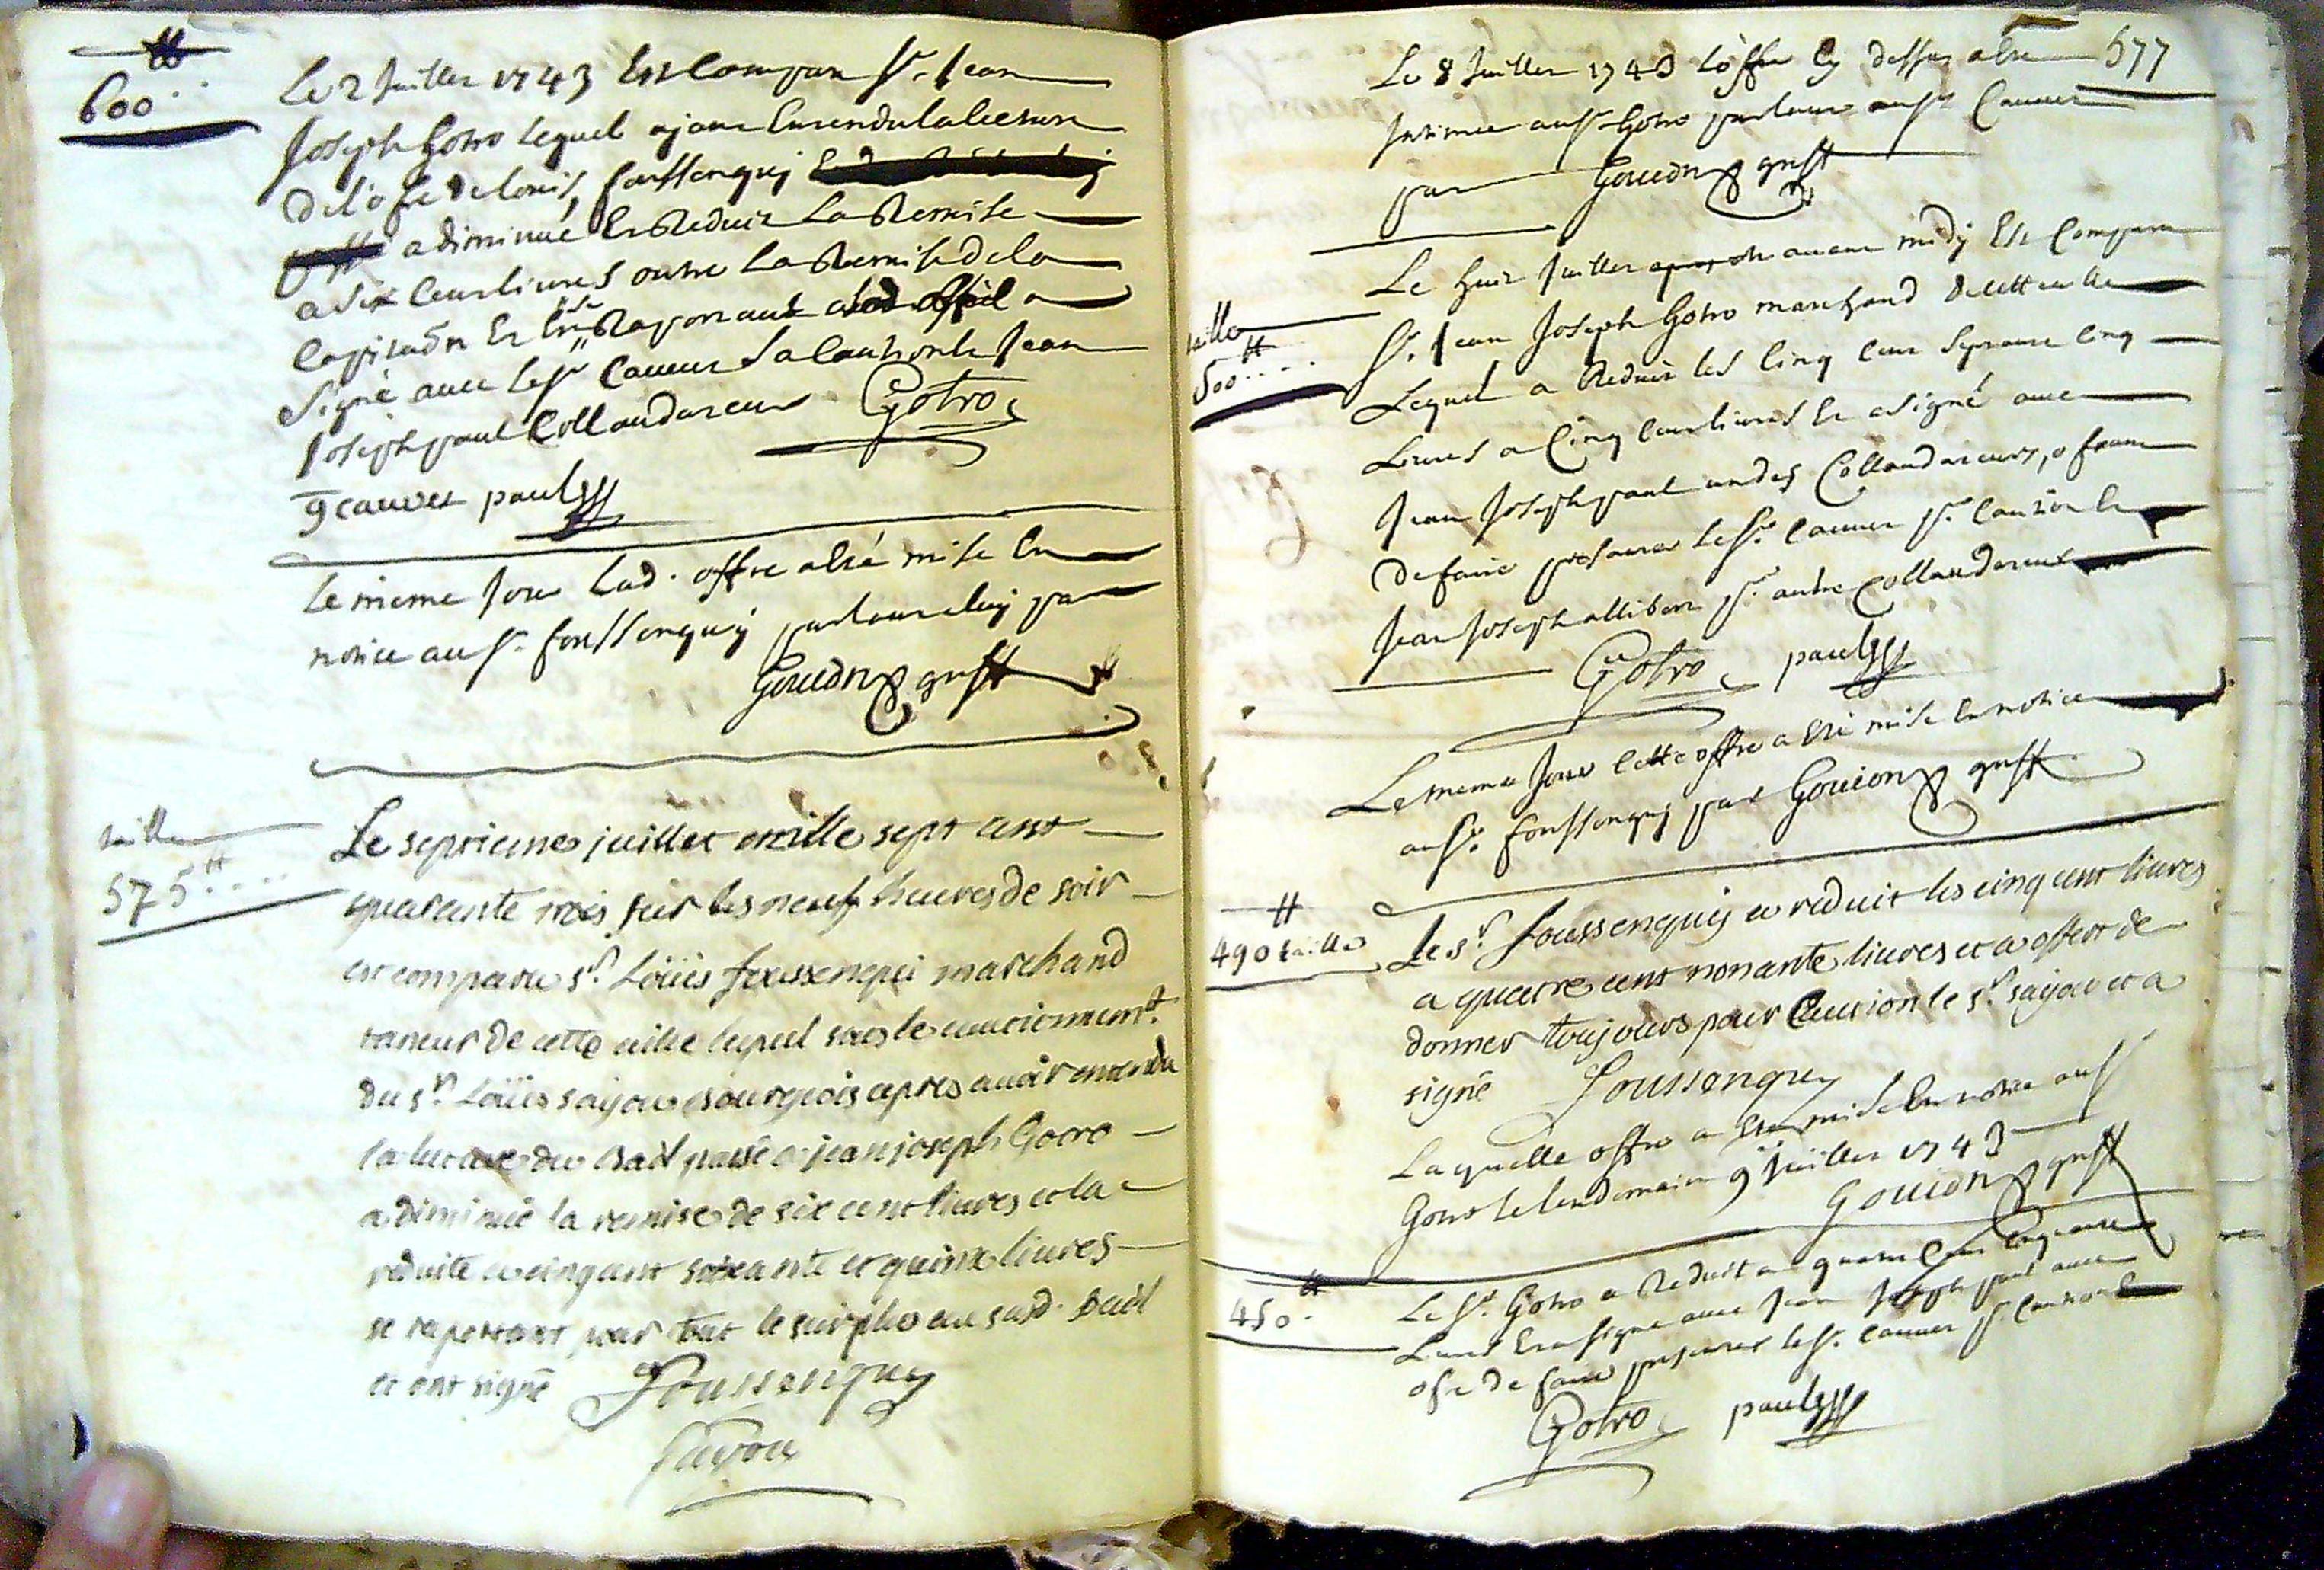 ₶
600..
Le 2 Juillet 1743 Est Comparu Sr. Jean
Joseph Gotro Lequel ayant Entendu la lecture
de l'offe de Louis foussenquy
a diminué Et Reduit La Remise
a Six Cent livres outre La Remise de la
Capitaōn Et En Se Raportant
Signé avec le Sr Cauvet Sa Caution Et Jean
Joseph paul Collaudateur Gotro
Cauvet paul
Le meme Jour Lad. offre a été mise En
notice au Sr. foussenquy parlant a luy par
Gouion greff
taille
575₶....
Le septieme juillet mille sept cent
quarante trois sur les neuf heures de soir
est comparu sr. Loüis foussenqui marchand
taneur de cette ville lequel sous le cautionnemt.
du sr. Loüis sayou bourgeois apres avoir entendu
la lecture du bail passé a jean joseph Gotro
a diminué la remise de six cent livres et la
reduite a cinq cent soixante et quinze livres
se raportant pour tout le surplus au susd. bail
et ont signé Foussenquy
Sayou
577
Le 8 Juillet 1743 L'offre Cy dessus a été
Intimée au Sr Gotro parlant au Sr Cauvet
par Gouion greff
Le huit Juillet avant midy Est Comparu
taille
500₶....
Sr. Jean Joseph Gotro marchand de cette ville
Lequel a Reduit les Cinq Cent Septante Cinq
Livres a Cinq Cent livres Et a Signé avec
Jean Joseph paul un des Collaudateurs, offrant
de faire presanter le Sr. Cauvet pr. Caution Et
Jean Joseph allibert pr. autre Collaudateur
Gotro paul
Le meme Jour Cette offre a été mise En notice
au Sr. foussenquy par Gouion greff
₶
490 taille
Le sr. Foussenquy a reduit les cinq cent livres
a quatre cent nonante livres et a offert de
donner toujours pour Caution le sr. sayou et a
signé Foussenquy
Laquelle offre a été mise En notice au Sr
Gotro le lendemain 9 Juillet 1743
Gouion greff
450₶.
Le Sr. Gotro a Reduit a quatre Cent Cinquante
Livres Et a Signé avec Jean Joseph paul avec
ofre de faire presanter le Sr. Cauvet pr. Caution
Gotro paul